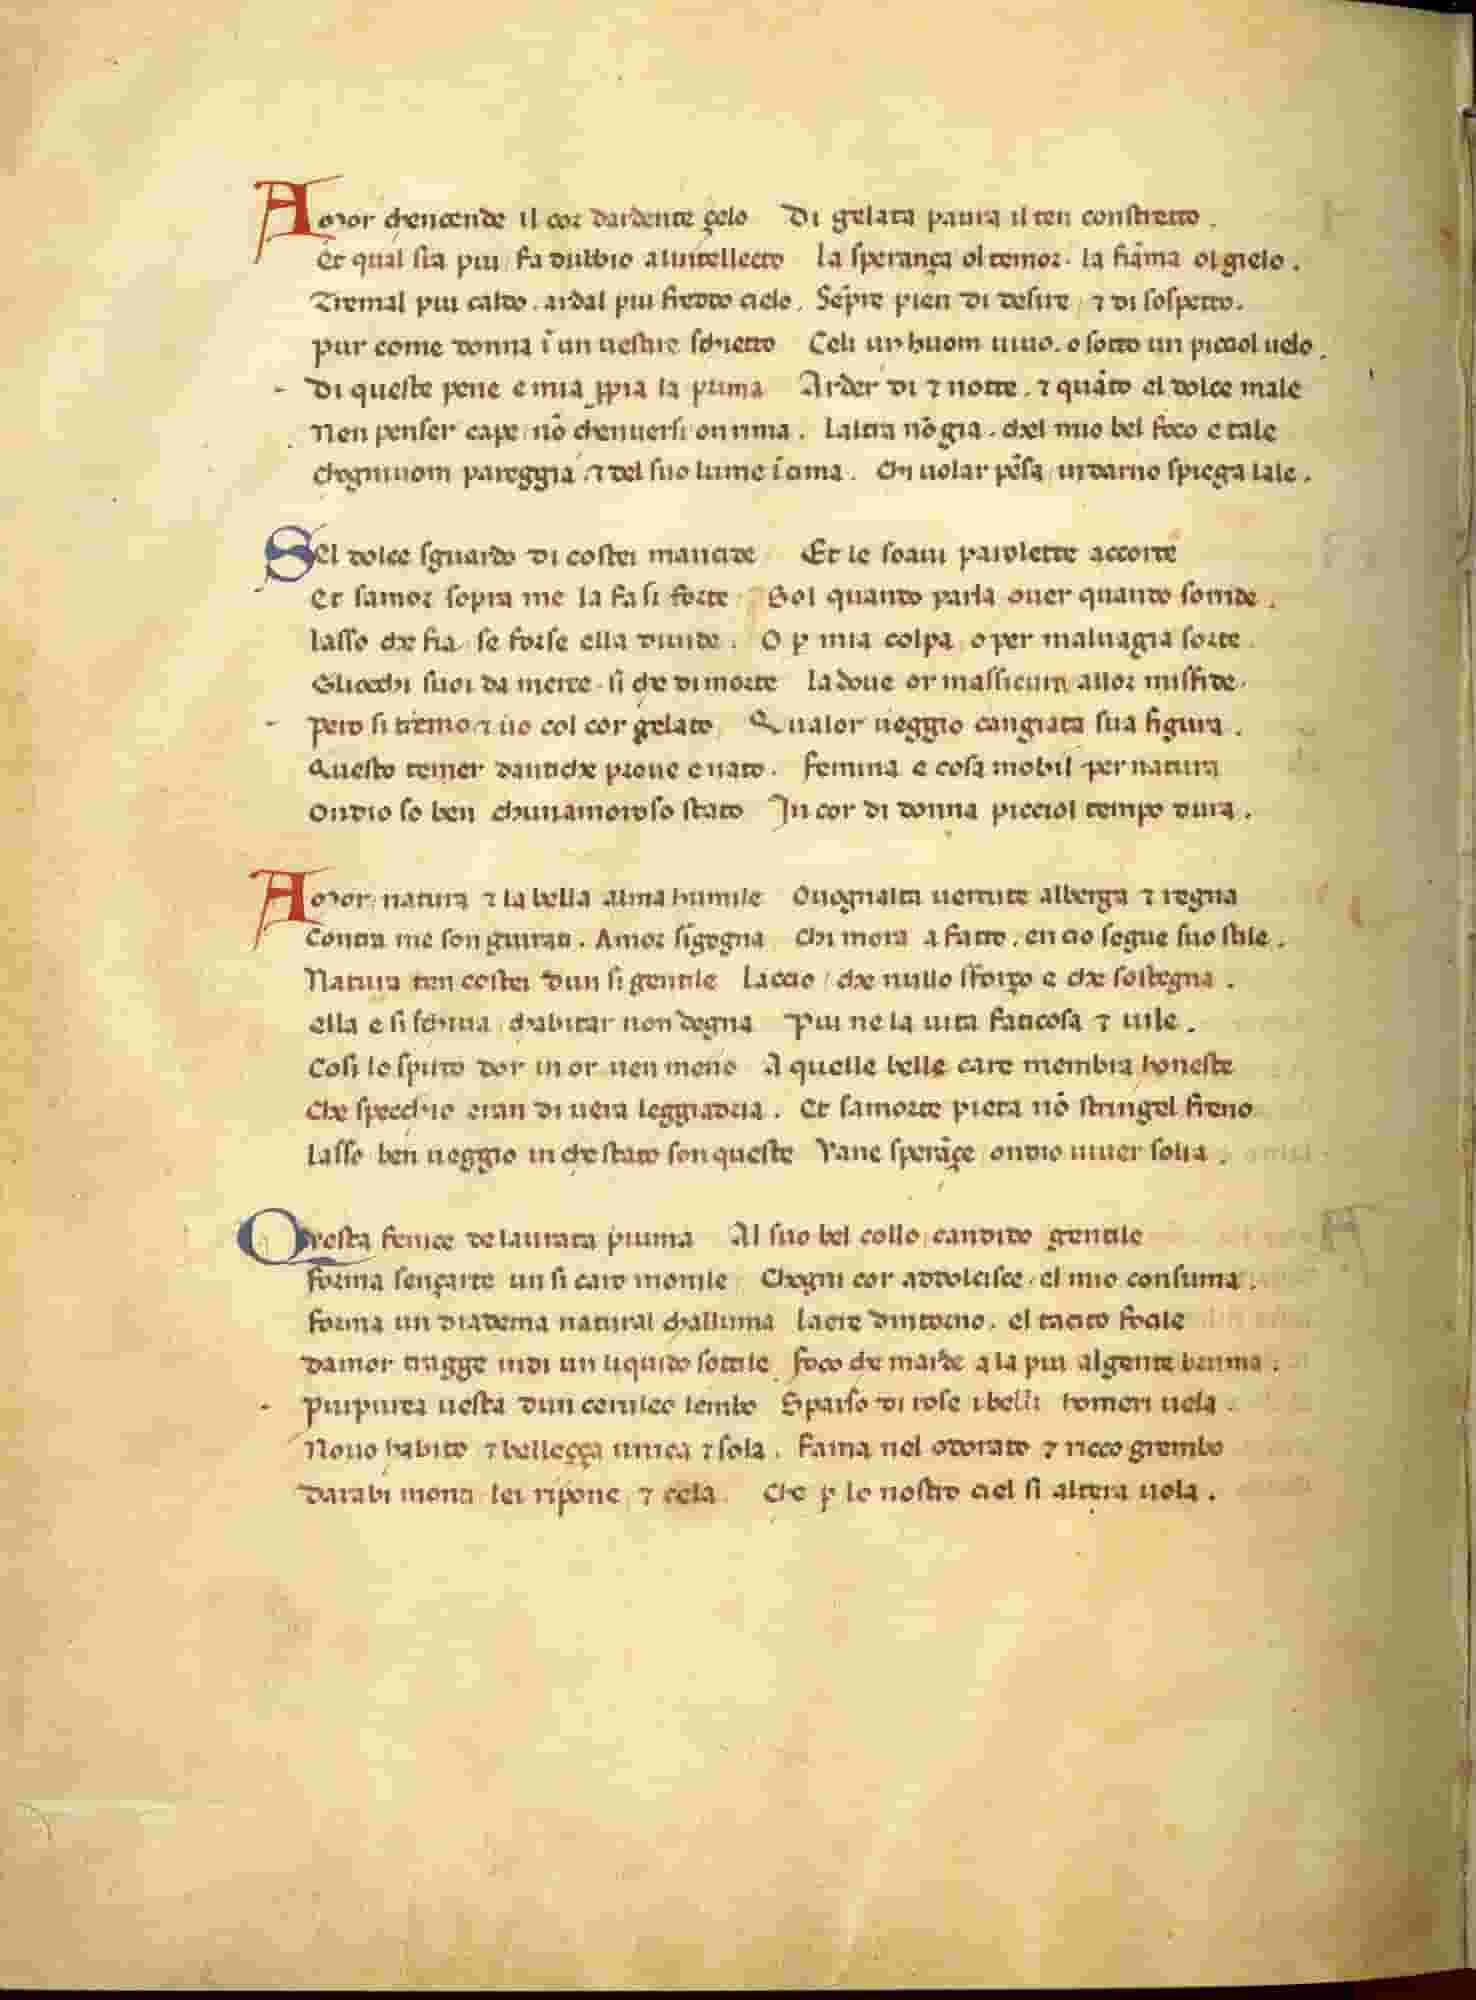 Amor chencende il cor dardente çelo Di gelata paura il ten constretto .
Et qual sia piu fa dubbio alintellecto La sperança ol temor . la fiãma ol gielo .
Tremal piu caldo . ardal piu freddo cielo . Sẽpre pien di desire ⁊ di sospetto .
Pur come donna ĩ un uestire schietto Celi un huom uiuo . o sotto un picciol uelo .
- Di queste pene e mia ꝓpia la prima Arder di ⁊ notte . ⁊ quãto el dolce male
Nen penser cape nõ chenuersi on rima . Laltra nõ gia . chel mio bel foco e tale
Chogniuom pareggia . ⁊ del suo lume ĩ cima . Chi uolar pẽsa indarno spiega lale .
Sel dolce sguardo di costei mancide Et le soaui parolette accorte
Et samor sopra me la fa si forte Sol quanto parla ouer quanto sorride .
Lasso che fia se forse ella diuide . O ꝑ mia colpa o per maluagia sorte
Gliocchi suoi da merce . si che di morte La doue or massicura allor misfide .
- Pero si tremo ⁊ uo col cor gelato Qualor ueggio cangiata sua figura .
Questo temer dantiche proue e nato . Femina e cosa mobil per natura
Ondio so ben chunamoroso stato In cor di donna picciol tempo dura .
Amor natura ⁊ la bella alma humile Ouognalta uertute alberga ⁊ regna
Contra me son giurati . Amor singegna Chi mora a fatto . en cio segue suo stile .
Natura ten costei dun si gentile Laccio che nullo sforço e che sostegna .
Ella e si schiua chabitar non degna Piu ne la uita faticosa ⁊ uile .
Cosi lo spirto dor in or uen meno A quelle belle care membra honeste
Che specchio eran di uera leggiadria . Et samorte pieta nõ stringel freno
Lasso ben ueggio in che stato son queste Vane sperãçe ondio uiuer solia .
Questa fenice de laurata piuma Al suo bel collo candido gentile
Forma sençarte un si caro monile Chogni cor addolcisce . el mio consuma .
Forma un diadema natural challuma Laere dintorno . el tacito focile
Damor tragge indi un liquido sottile foco che marde a la piu algente bruma .
- Purpurea uesta dun ceruleo lembo Sparso di rose i belli homeri uela .
Nouo habito ⁊ belleçça unica ⁊ sola . Fama nel odorato ⁊ ricco grembo
Darabi monti lei ripone ⁊ cela . Che ꝑ lo nostro ciel si altera uola .